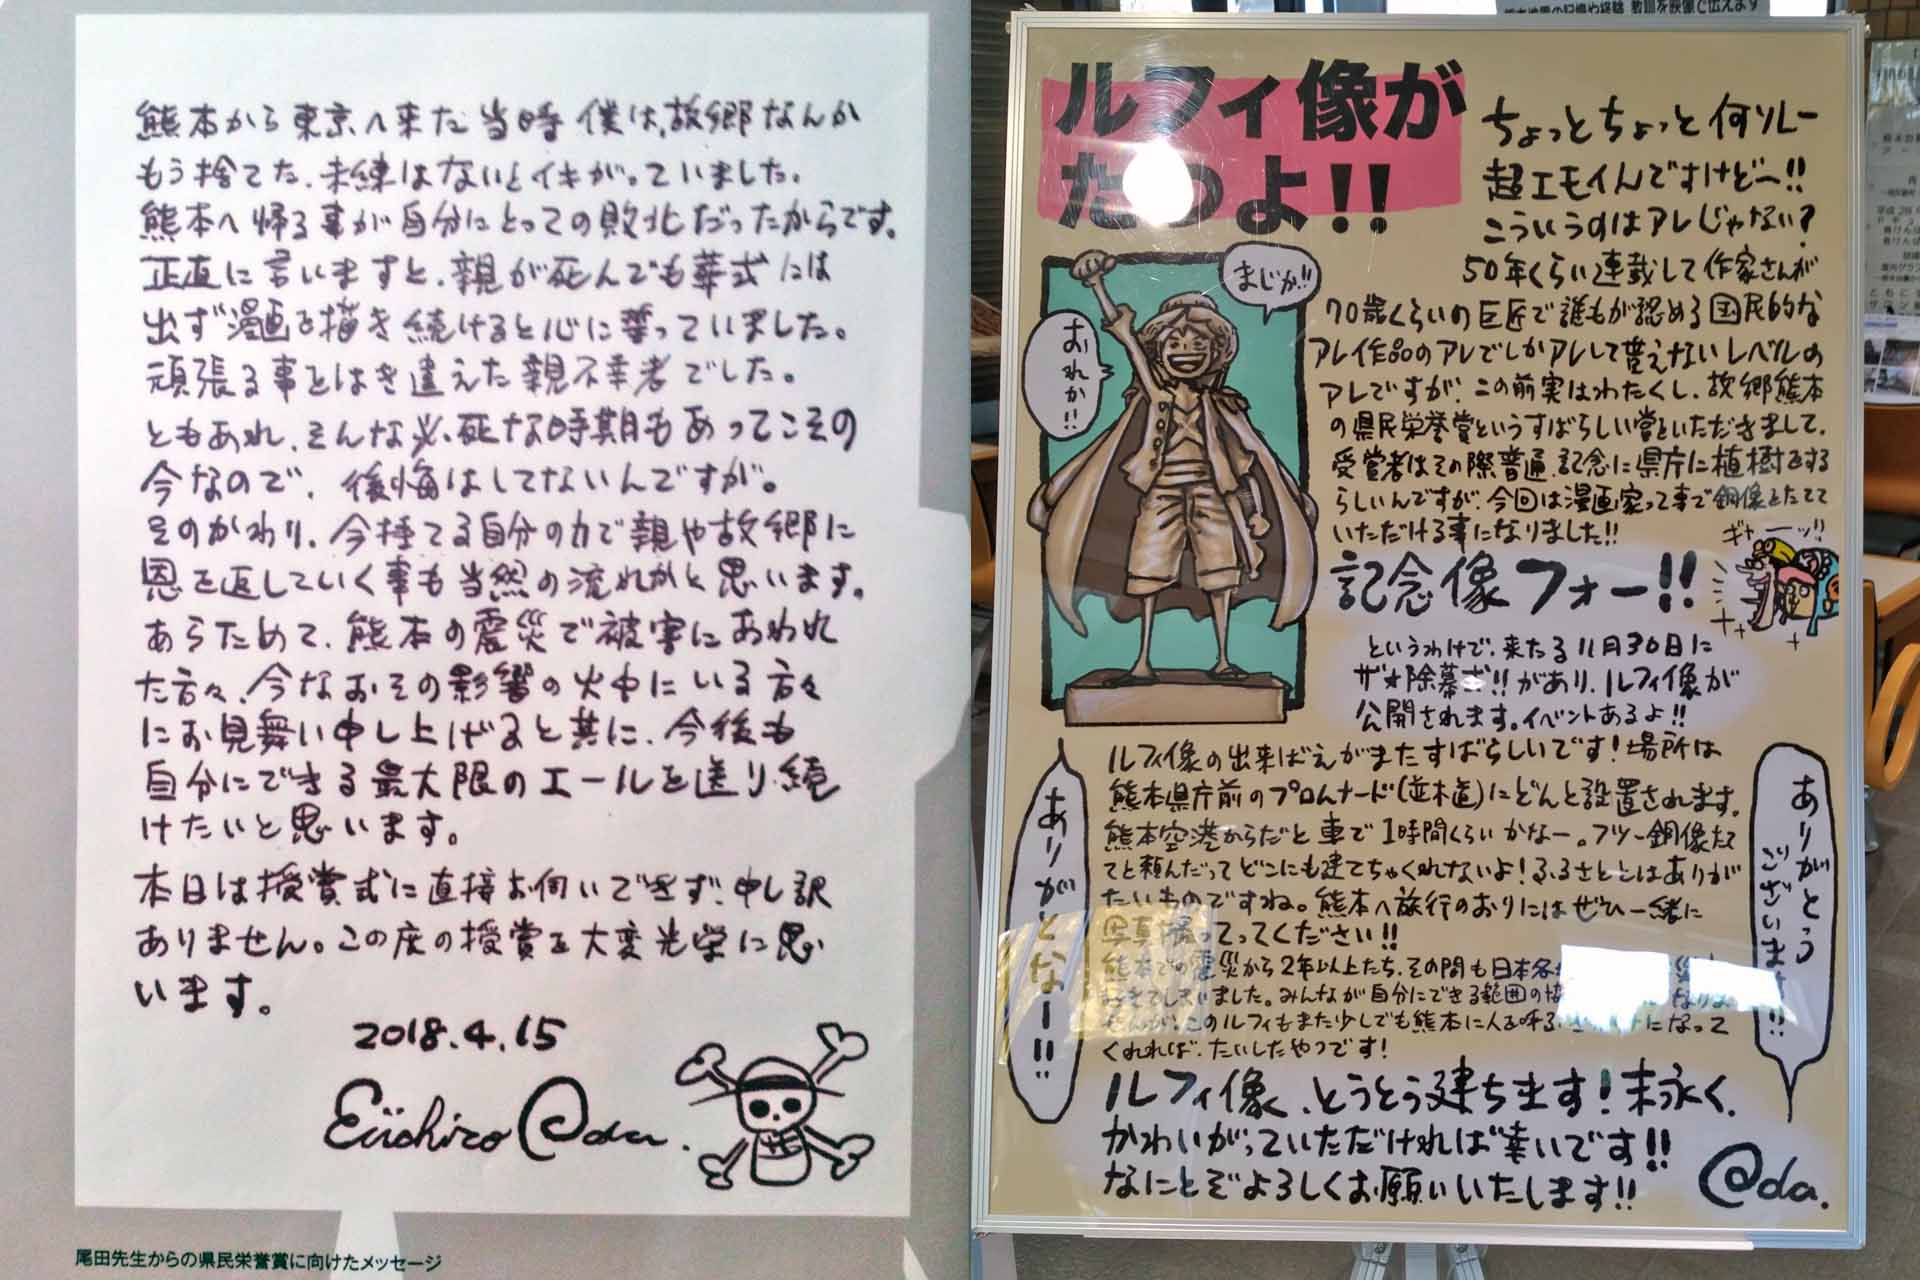 熊本から東京へ来た当時 僕は、故郷なんか
もう捨てた、未練はないとイキがっていました。
熊本へ帰る事が自分にとっての敗北だったからです。
正直に言いますと、親が死んでも葬式には
出ず漫画を描き続けると心に誓っていました。
頑張る事をはき違えた親不幸者でした。
ともあれ、そんな必死な時期もあってこその
今なので、後悔はしてないんですが。
そのかわり、今持てる自分の力で親や故郷に
恩を返していく事も当然の流れかと思います。
あらためて、熊本の震災で被害にあわれ
た方々、今なおその影響の火中にいる方々
にお見舞い申し上げると共に、今後も
自分にできる最大限のエールを送り続
けたいと思います。
本日は授賞式に直接お伺いできず、申し訳
ありません。この度の授賞を大変光栄に思
います。
2018.4.15
Eiichiro Oda.
尾田先生からの県民栄誉賞に向けたメッセージ
ルフィ像が
たつよ!!
ちょっとちょっと何ソレー
超エモイんですけどー!!
こういうのはアレじゃない?
50年くらい連載して作家さんが
70歳くらいの巨匠で誰もが認める国民的な
アレイ作品のアレでしかアレして貰えないレベルの
アレですが、この前実はわたくし、故郷熊本
の県民栄誉賞というすばらしい賞をいただきまして、
受賞者はその際普通、記念に県庁に植樹をする
らしいんですが、今回は漫画家って事で銅像をたてて
いただける事になりました!!
まじか!!
おれか!!
ギャーッ!!
記念像フォー!!
というわけで、来たる11月30日に
ザ★除幕式!!があり、ルフィ像が
公開されます。イベントあるよ!!
ルフィ像の出来ばえがまたすばらしいです!場所は
熊本県庁前のプロムナード(並木道)にどんと設置されます。
熊本空港からだと車で1時間くらいかなー。フツー銅像たて
てと頼んだってどこにも建てちゃくれないよ!ふるさととはありが
たいものですね。熊本へ旅行のおりにはぜひ一緒に
写真撮ってってください!!
熊本での震災から2年以上たち、その間も日本各
起きてしまいました。みんなが自分にできる範囲の
せんが、このルフィもまた少しでも熊本に人を呼ぶ になって
くれれば、たいしたやつです!
ありがとなー!!
ありがとう
ございます!!
ルフィ像、とうとう建ちます!末永く、
かわいがっていただければ幸いです!!
なにとぞよろしくお願いいたします!!
Oda.